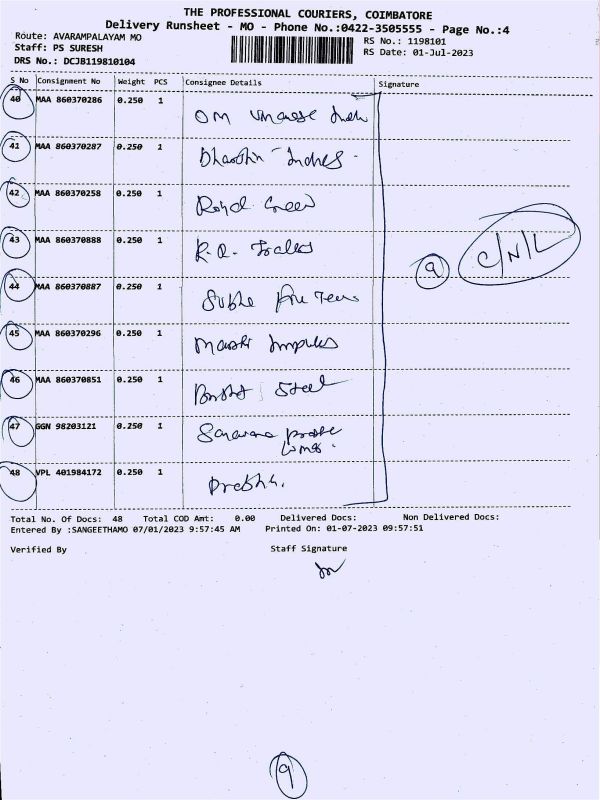 THE PROFESSIONAL COURIERS, COIMBATORE
Delivery Runsheet - MO - Phone No.:0422-3505555 - Page No.:4
Route: AVARAMPALAYAM MO
RS No.: 1198101
Staff: PS SURESH
RS Date: 01-Jul-2023
DRS No.: DCJB119810104
S No Consignment No Weight PCS Consignee Details Signature
40 MAA 860370286 0.250 1 OM
41 MAA 860370287 0.250 1
42 MAA 860370258 0.250 1 Royal Green
43 MAA 860370888 0.250 1 R.R. Trades
9 C/N/L
44 MAA 860370887 0.250 1
45 MAA 860370296 0.250 1
46 MAA 860370851 0.250 1 Steel
47 GGN 98203121 0.250 1
48 VPL 401984172 0.250 1 Prabhu.
Total No. Of Docs: 48 Total COD Amt: 0.00 Delivered Docs: Non Delivered Docs:
Entered By :SANGEETHAMO 07/01/2023 9:57:45 AM Printed On: 01-07-2023 09:57:51
Verified By Staff Signature
9